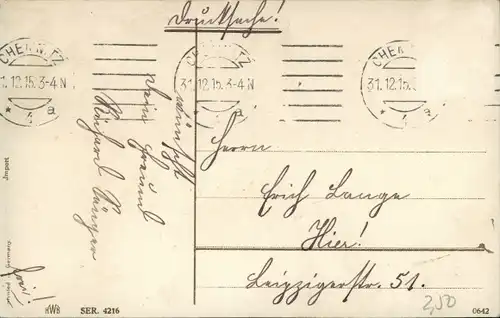 Drucksache!
CHEMNITZ
31.12.15. 3-4 N
* 4 a
CHEMNITZ
31.12.15. 3-4 N
* 4 a
CHEMNITZ
31.12.15.
* 4 a
wünscht
Dein Freund
Richard
Herrn
Erich Lange
Hier!
Leipzigerstr. 51.
Import
frei!
HWB SER. 4216
2,50
0642